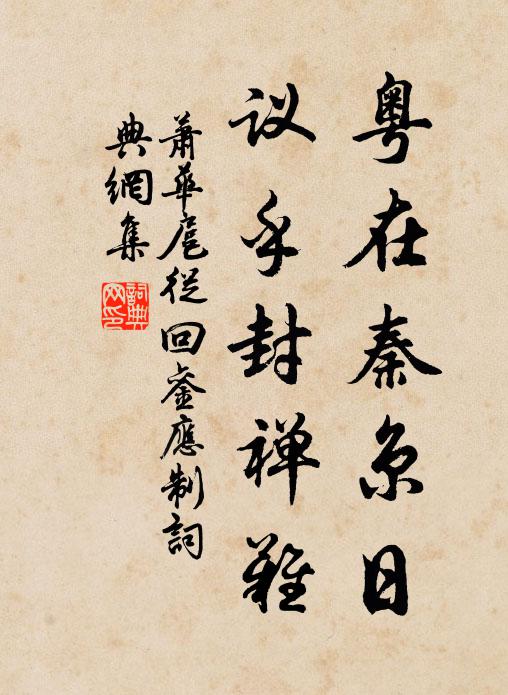 粤在秦京日
议乎封禅难
萧華扈從回銮應制詞
典網集
詞典网印